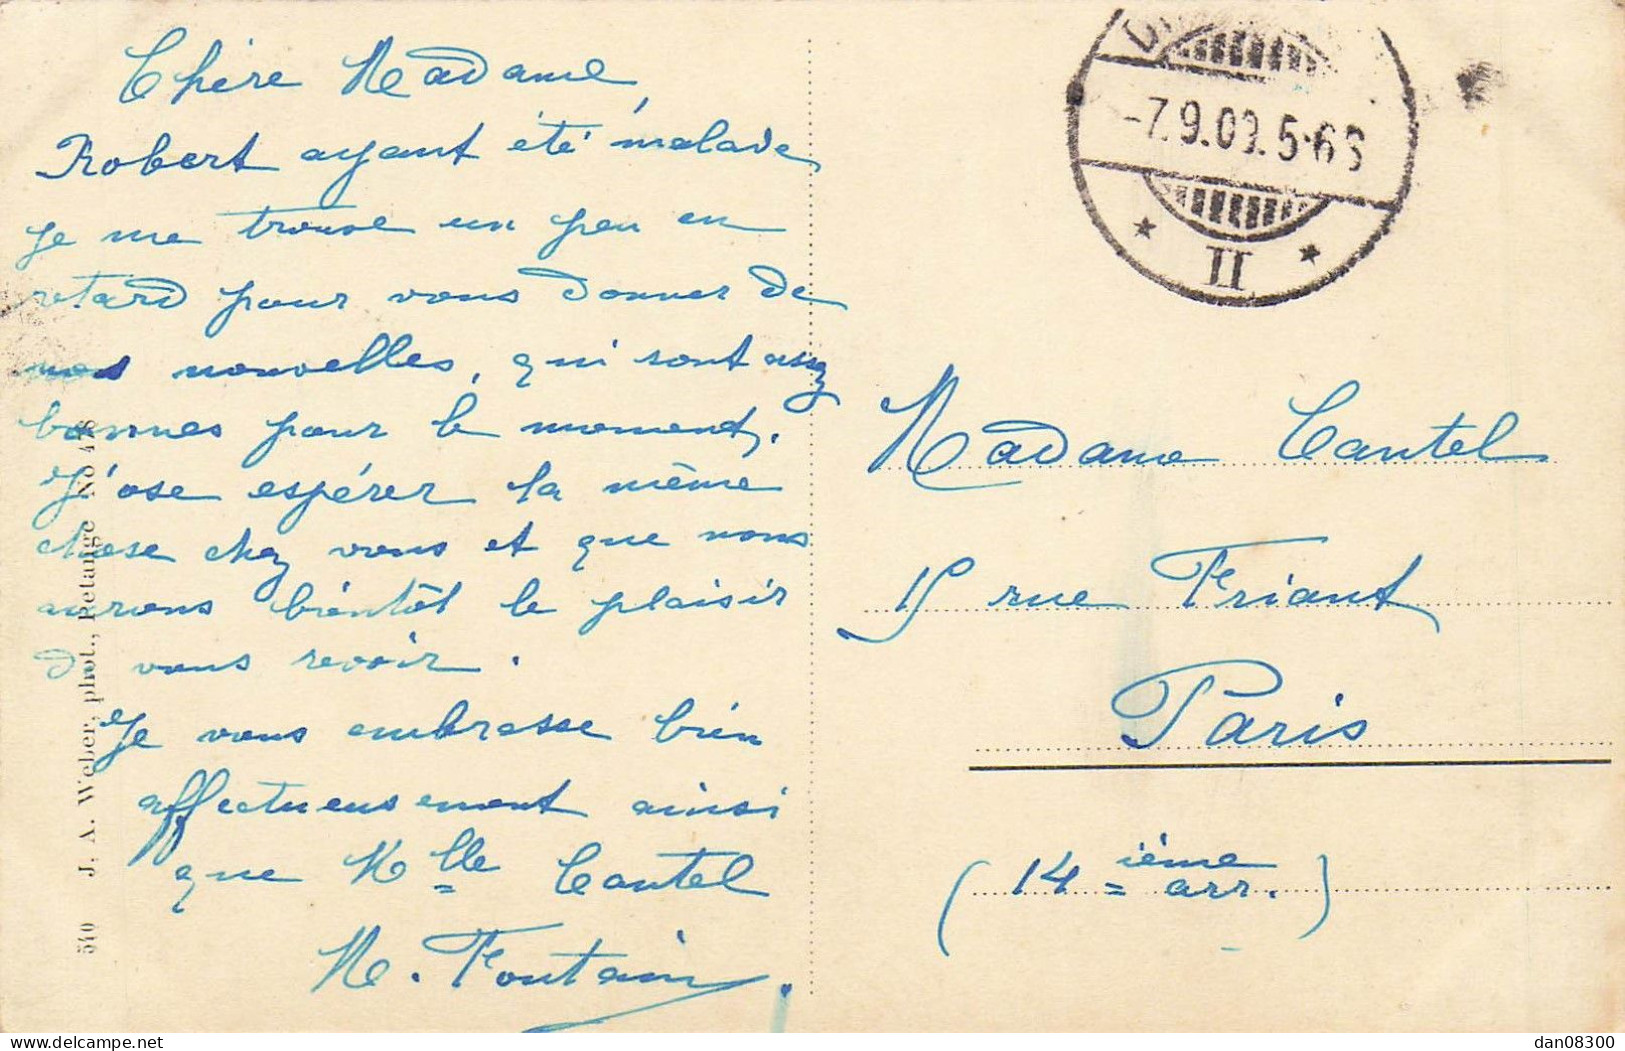 Chère Madame,
Robert ayant été malade
je me trouve un peu en
retard pour vous donner de
nos nouvelles, qui sont assez
bonnes pour le moment.
J'ose espérer la même
chose chez vous et que nous
aurons bientôt le plaisir
de vous revoir.
Je vous embrasse bien
affectueusement ainsi
que Mlle Cantel
M. Fontain
540 J. A. Weber, phot., Hetange No 478
-7.9.09. 5-6 S
II
Madame Cantel
15 rue Friant
Paris
(14 ième arr.)
delcampe.net
dan08300